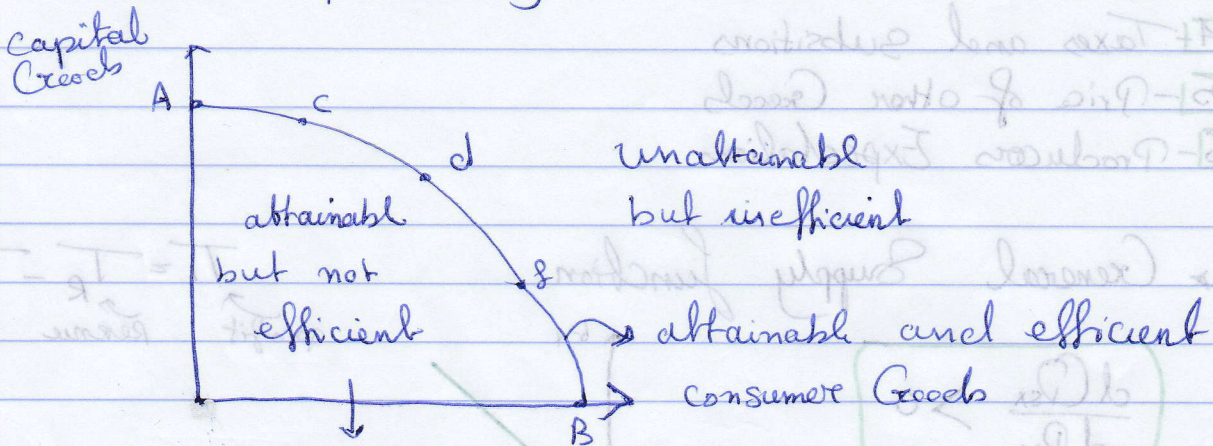 Capital
Goods
A
c
d
unattainable
but inefficient
attainable
but not
efficient
f
attainable and efficient
consumer Goods
B